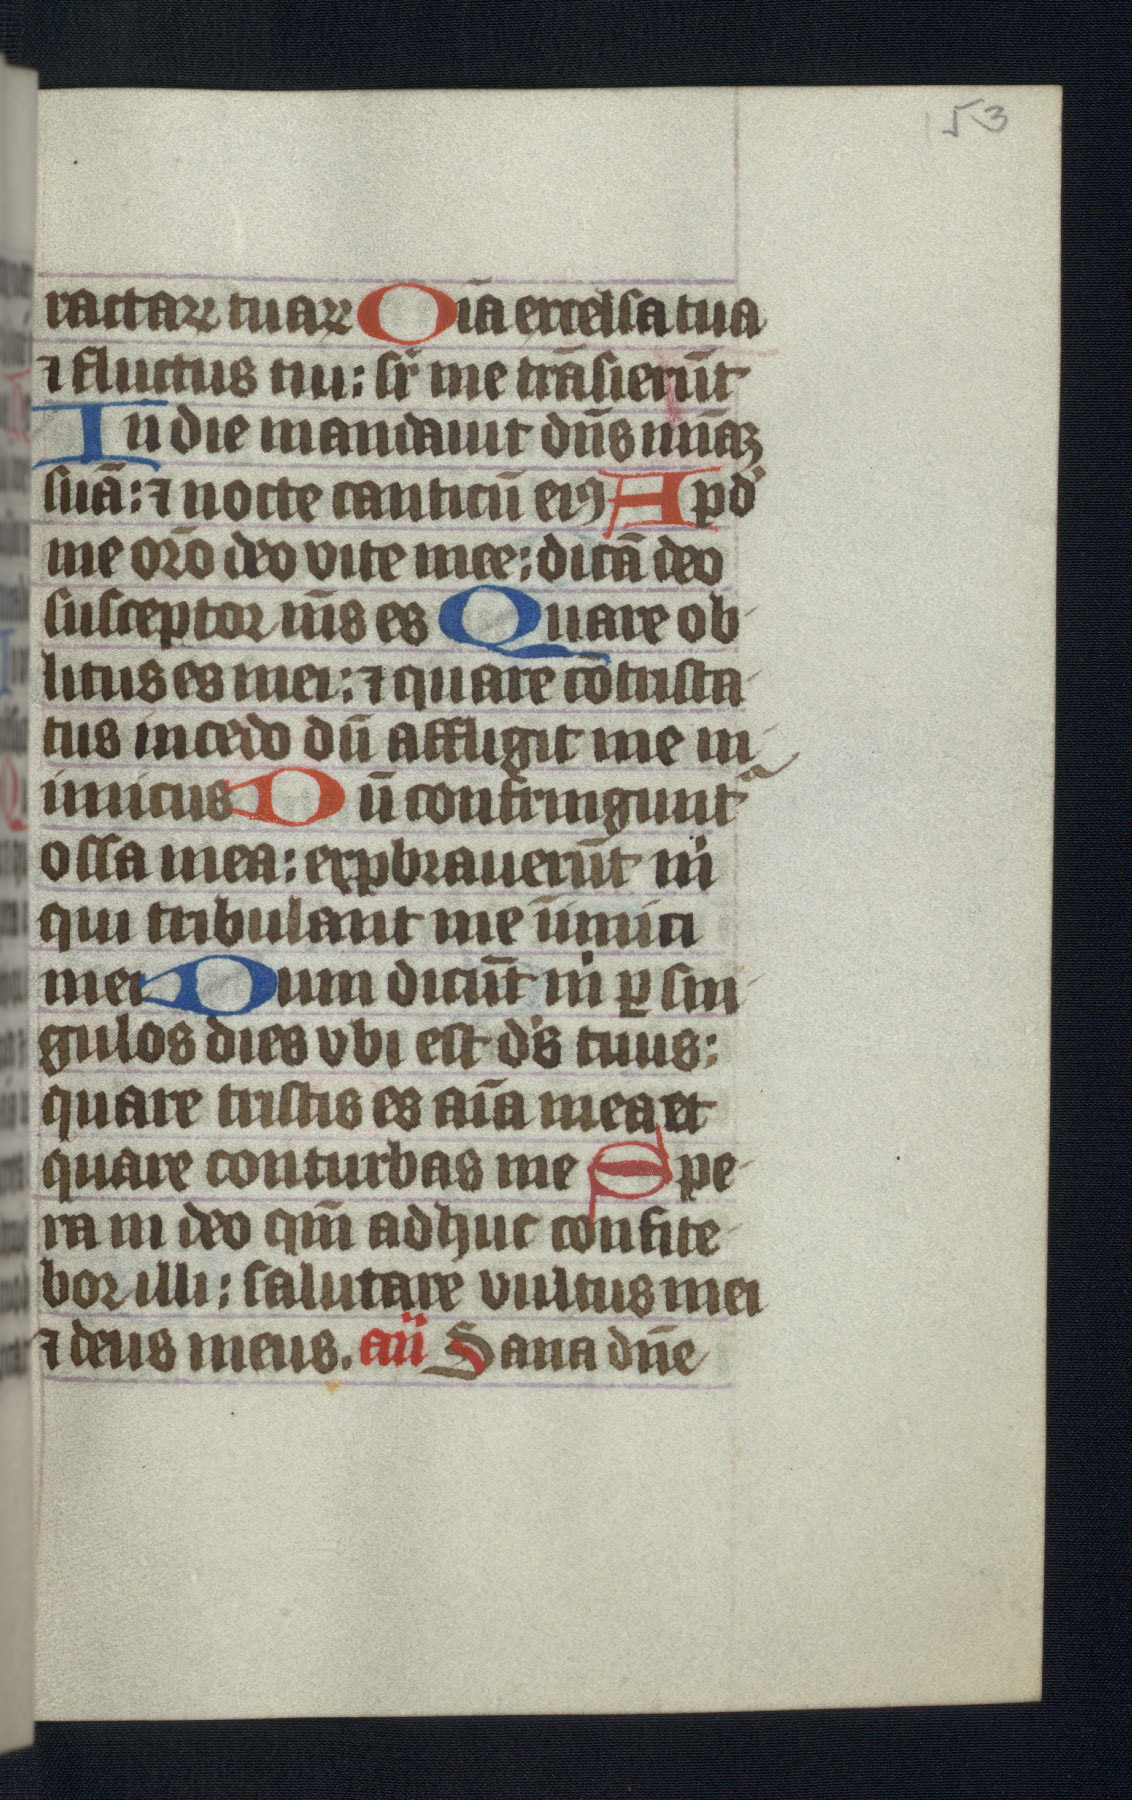 153
ractaꝝ tuaꝝ Oīa excelsa tua
⁊ fluctus tui: sr̄ me trāsierūt
In die mandauit dn̄s mīaꝫ
suā: ⁊ nocte canticū eiꝰ Apd'
me or̄o deo vite mee: dicā deo
susceptor m̄s es Quare ob
litus es mei: ⁊ quare cōtrista
tus incedo dū affligit me in
imicus Dū confringunt᷑
ossa mea: exꝓbrauerūt m̄
qui tribulant me īimici
mei Dum dicūt m̄ ꝑ sin
gulos dies vbi est ds̄ tuus:
quare tristis es aīa mea et
quare conturbas me Spe
ra in deo qm̄ adhuc confite
bor illi: salutare vultus mei
⁊ deus meus. an̄ Sana dn̄e